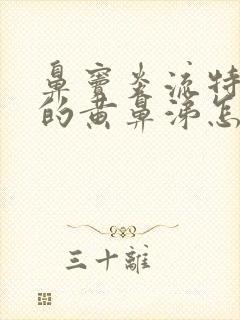 鼻窦炎流特
的黄鼻涕怎
三十離